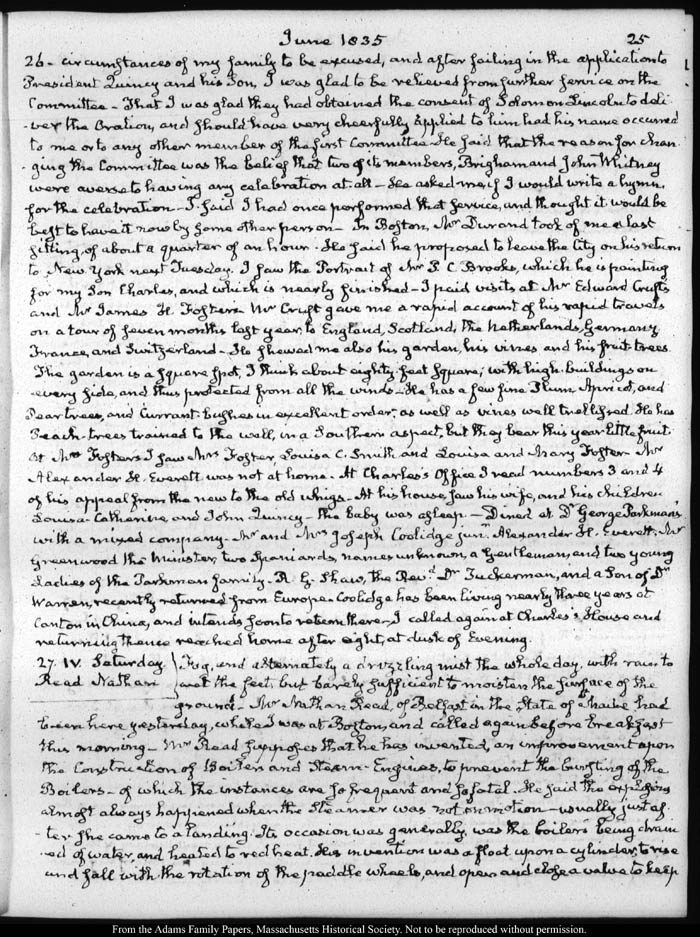 June 1835 25
26 - circumstances of my family to be excused, and after failing in the application to
President Quincy and his Son, I was glad to be relieved from further service on the
Committee - That I was glad they had obtained the consent of Solomon Lincoln to deli-
-ver the Oration, and should have very cheerfully applied to him had his name occurred
to me or to any other member of the first Committee. He said that the reason for chan-
-ging the Committee was the belief that two of its members, Brigham and John Whitney
were averse to having any celebration at all - He asked me if I would write a hymn,
for the celebration - I said I had once performed that service, and thought it would be
best to have it now by some other person - In Boston, Mr Durand took of me a last
sitting, of about a quarter of an hour. He said he proposed to leave the City on his return
to New York next Tuesday. I saw the Portrait of Mr P. C. Brooks, which he is painting
for my Son Charles, and which is nearly finished - I paid visits at Mr Edward Cruft's
and Mr James H. Foster's - Mr Cruft gave me a rapid account of his rapid travels
on a tour of seven months last year, to England, Scotland, the Netherlands, Germany,
France, and Switzerland - He shewed me also his garden, his vines and his fruit trees.
The garden is a square spot, I think about eighty feet square, with high buildings on
every side, and thus protected from all the winds - He has a few fine Plum Apricot, and
Pear trees, and Currant bushes in excellent order, as well as vines well trellised. He has
Peach-trees trained to the wall, in a Southern aspect, but they bear this year little fruit.
At Mr Foster's I saw Mrs Foster, Louisa C. Smith and Louisa and Mary Foster - Mr
Alexander H. Everett was not at home. At Charles's Office I read numbers 3 and 4
of his appeal from the new to the old whigs. At his house, saw his wife, and his children
Louisa-Catherine and John Quincy - the baby was asleep. - Dined at Dr George Parkman's
with a mixed company - Mr and Mrs Joseph Coolidge junr. Alexander H. Everett, Mr
Greenwood the Minister, two Spaniards, names unknown, a Gentleman, and two young
Ladies of the Parkman family - R. G. Shaw, the Revd. Dr Tuckerman, and a Son of Dr
Warren, recently returned from Europe - Coolidge has been living nearly three years at
Canton in China, and intends soon to return there - I called again at Charles's House and
returning thence reached home after eight, at dusk of Evening.
27. IV. Saturday. Fog, and alternately a drizzling mist the whole day, with rain to
Read Nathan wet the feet, but barely sufficient to moisten the surface of the
ground - Mr Nathan Read, of Belfast in the State of Maine had
been here yesterday, while I was at Boston, and called again before breakfast
this morning - Mr Read supposes that he has invented, an improvement upon
the Construction of Boilers and Steam-Engines, to prevent the bursting of the
Boilers - of which the instances are so frequent and so fatal. He said the explosions
almost always happened when the Steamer was not in motion - usually just af-
-ter she came to a landing. Its occasion was generally, was the boilers being drain-
-ed of water, and heated to red heat. His invention was a float upon a cylinder, to rise
and fall with the rotation of the paddle wheels, and open and close a valve to keep
From the Adams Family Papers, Massachusetts Historical Society. Not to be reproduced without permission.